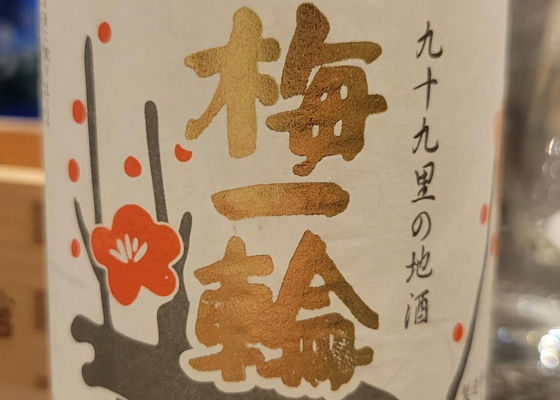 九十九里の地酒
梅一輪